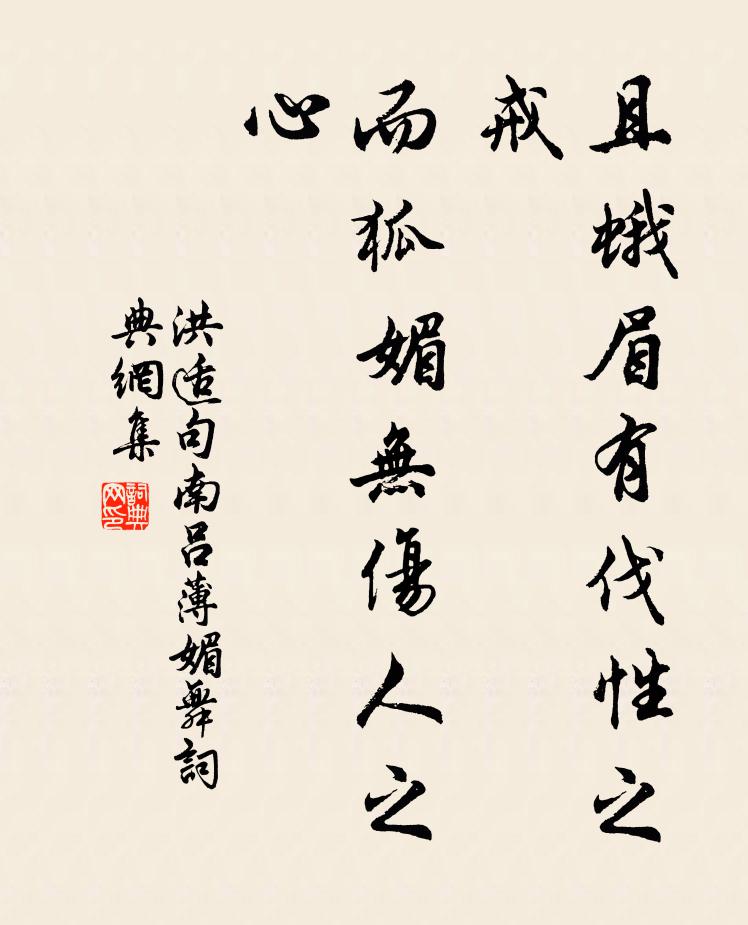 且蛾眉有伐性之
戒
而狐媚無傷人之
心
洪适句南呂薄媚舞詞
典網集
詞典
网印